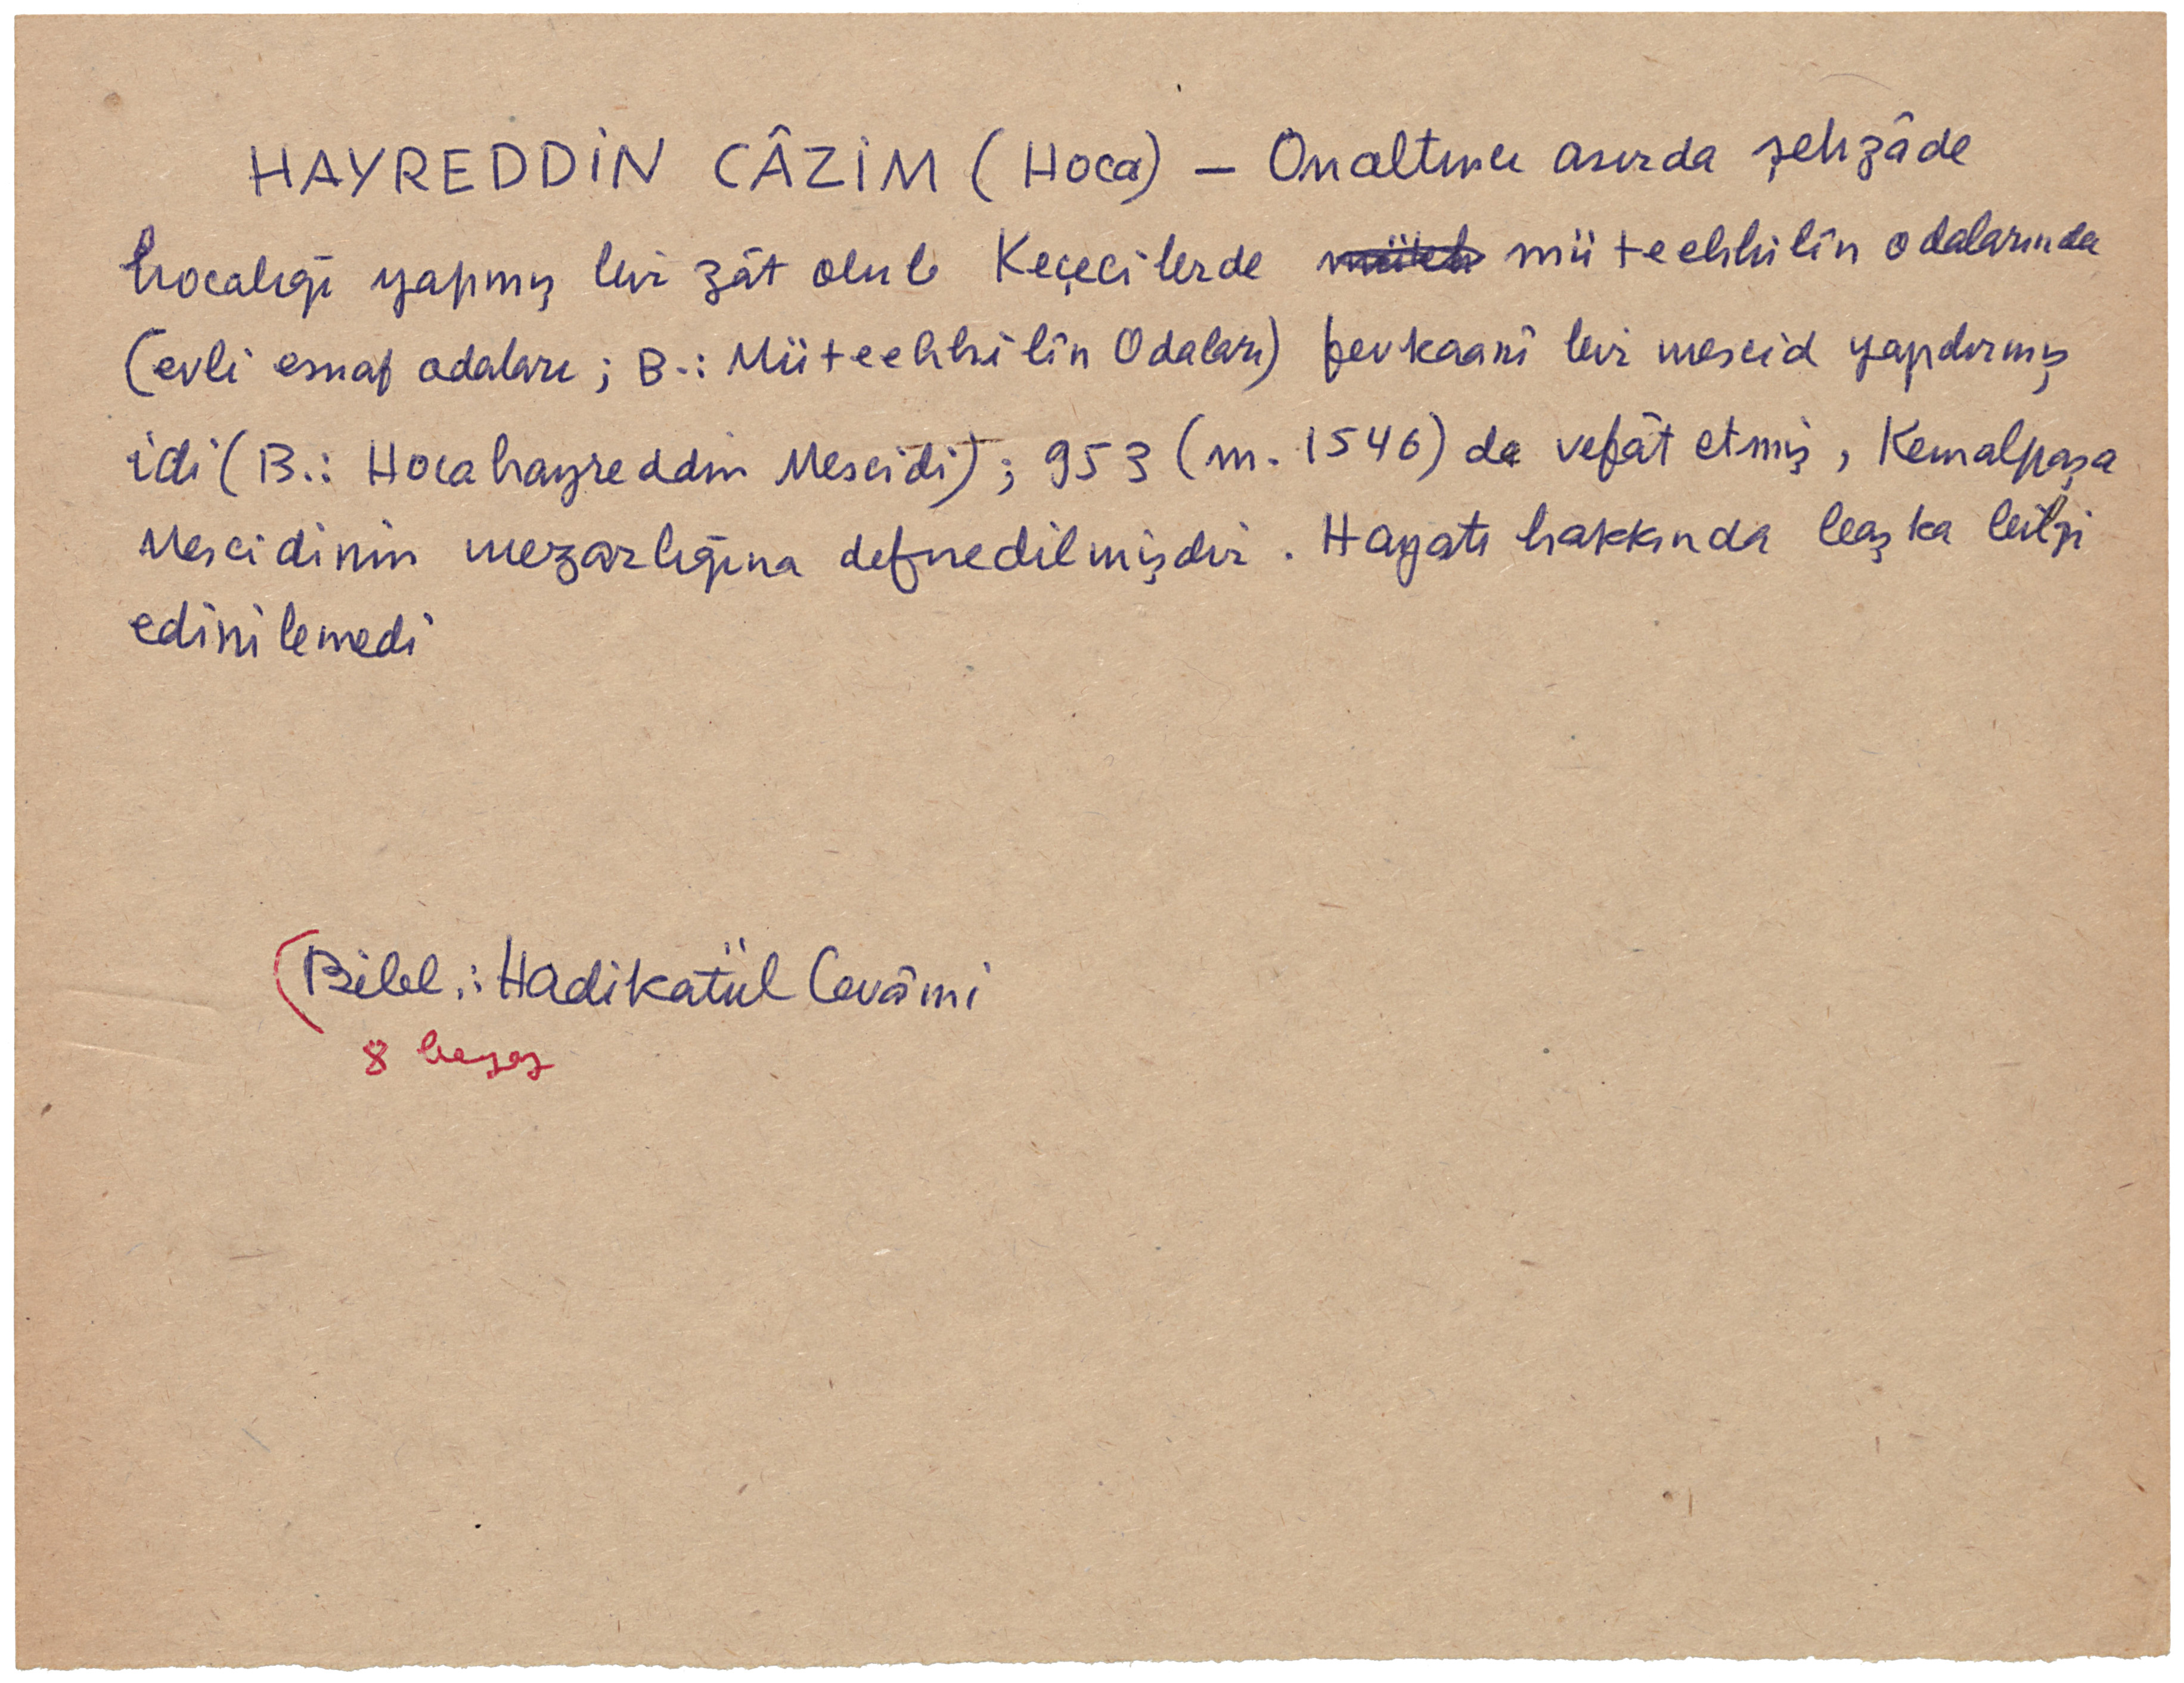 HAYREDDİN CÂZİM (Hoca) — Onaltıncı asırda şehzâde
hocalığı yapmış bir zât olub Keçecilerde müteehhilîn odalarında
(evli esnaf odaları; B.: Müteehhilîn Odaları) fevkaani bir mescid yapdırmış
idi (B.: Hocahayreddin Mescidi); 953 (m. 1546) da vefât etmiş, Kemalpaşa
Mescidinin mezarlığına defnedilmişdir. Hayatı hakkında başka bilgi
edinilemedi
(Bibl.: Hadikatül Cevâmi
8 beyaz